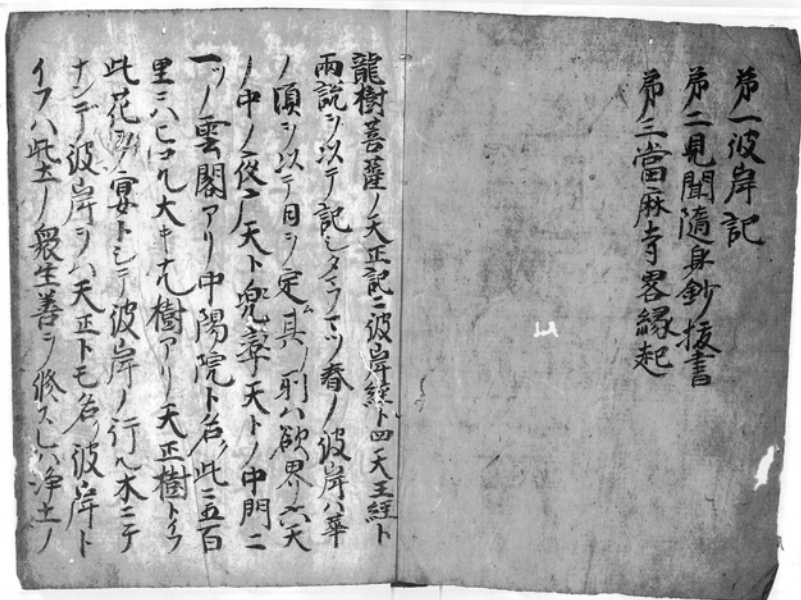 第一彼岸記
第二見聞隨身鈔抜書
第三當麻寺畧縁起
龍樹菩薩ノ天正記ニ彼岸經ト四天王經ト
兩説ヲ以テ記シタマフ春ノ彼岸ハ華
ノ頃ヲ以テ日ヲ定其ノ刹ハ欲界ノ六天
ノ中ノ夜マ天ト兜率天トノ中門ニ
一ツノ雲閣アリ中陽院ト名ク此ニ五百
里ニハヒコル大キナル樹アリ天正樹トイフ
此花ノ宴トシテ彼岸ノ行
ナンデ彼岸ヲハ天正トモ名ク彼岸ト
イフハ此土ノ衆生善ヲ修スレハ淨土ノ